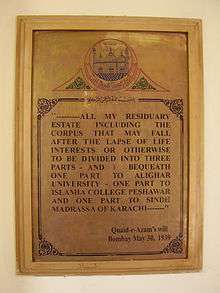 --------ALL MY RESIDUARY
ESTATE INCLUDING THE
CORPUS THAT MAY FALL
AFTER THE LAPSE OF LIFE
INTERESTS OR OTHERWISE
TO BE DIVIDED INTO THREE
PARTS - AND I BEQUEATH
ONE PART TO ALIGHAR
UNIVERSITY - ONE PART TO
ISLAMIA COLLEGE PESHAWAR
AND ONE PART TO SINDH
MADRASSA OF KARACHI--------"
Quaid-e-Azam's will
Bombay May 30, 1939